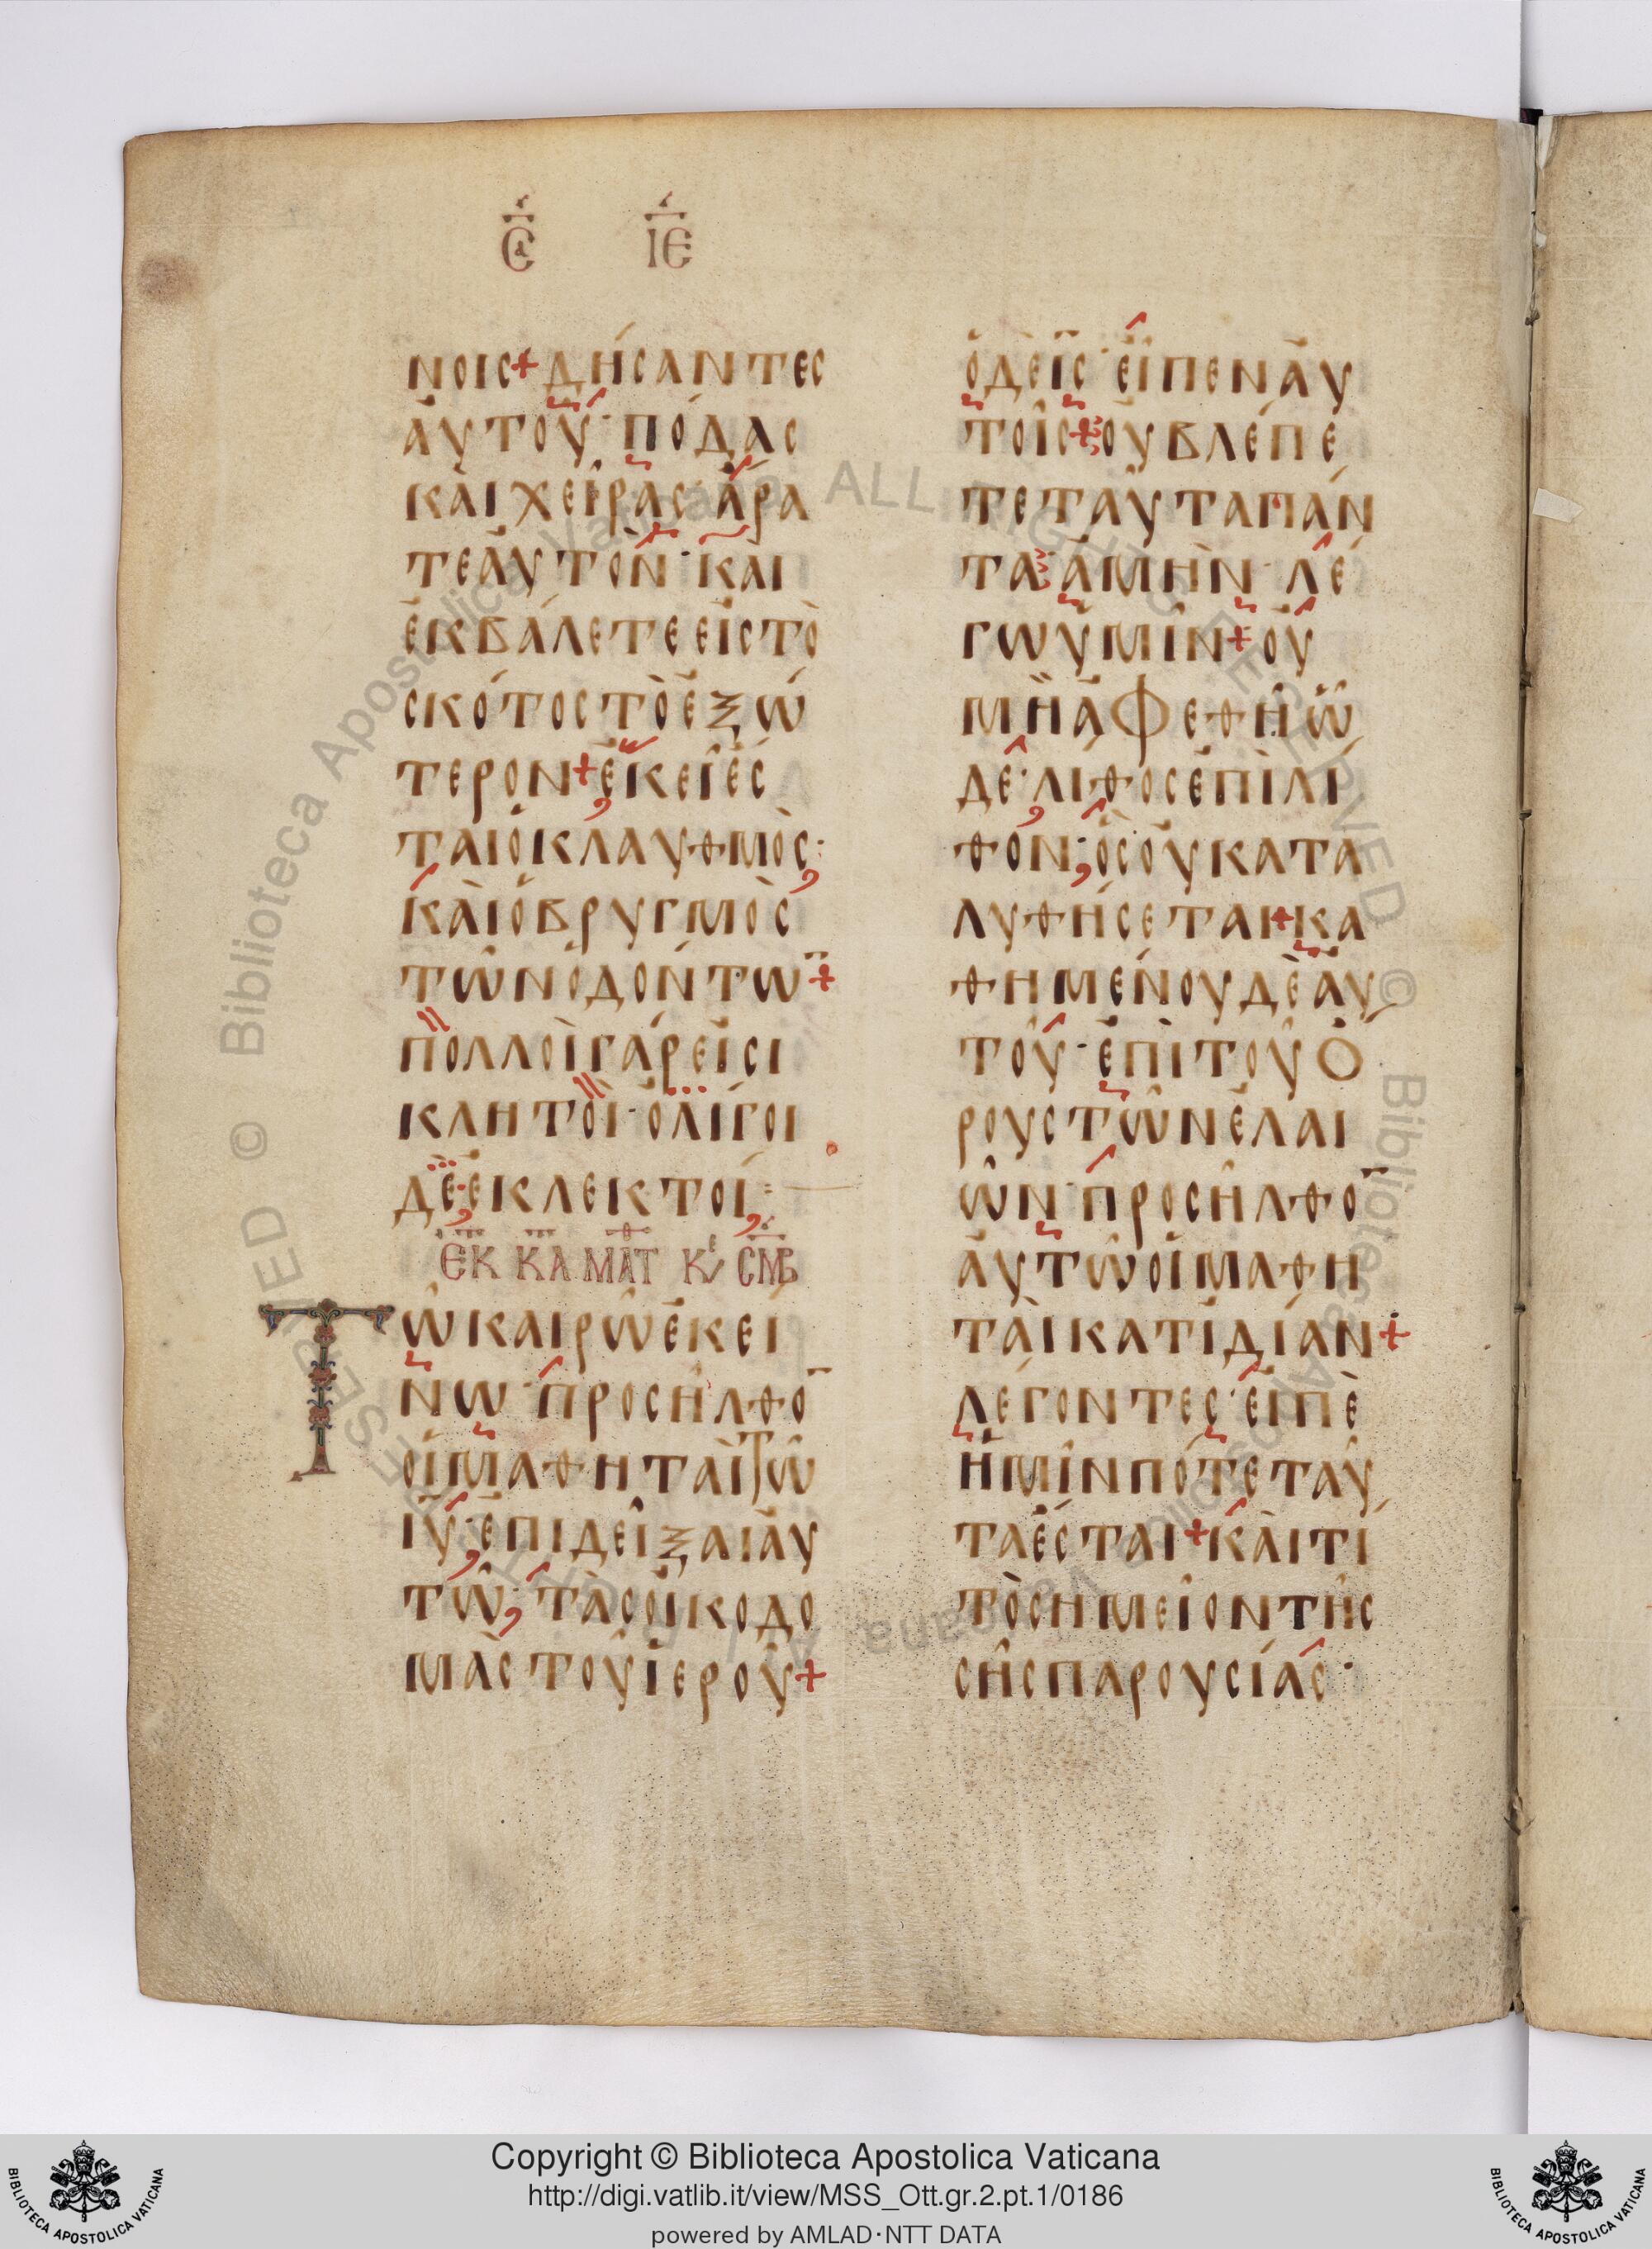 Ϲ̅ᵈ ΙΕ̅
ΝΟΙϹ + ΔΉϹΑΝΤΕϹ
ἈΥΤΟῦ · ΠΌΔΑϹ
ΚΑῚ ΧΕῖΡΑϹ · ἌΡΑ
ΤΕ ἈΥΤῸΝ · ΚΑῚ
ἘΚΒΆΛΕΤΕ ΕἸϹ ΤῸ
ϹΚΌΤΟϹ ΤῸ ἘΞΏ
ΤΕΡΟΝ + ἘΚΕῖ ἜϹ
ΤΑΙ Ὁ ΚΛΑΥΘΜῸϹ ·
ΚΑῚ Ὁ ΒΡΥΓΜῸϹ
ΤῶΝ ὈΔΌΝΤΩ̅ +
ΠΟΛΛΟῚ ΓΆΡ ΕἸϹΙ
ΚΛΗΤΟῚ · ὈΛΊΓΟΙ
ΔῈ · ἘΚΛΕΚΤΟΊ :
ΕΚ ΚΑ ΜΑΤ Κ, ϹΜΒ
Τῶ ΚΑΙΡῶ ἘΚΕΙ
ΝΩ · ΠΡΟϹῆΛΘΟ̅
ΟἹ ΜΑΘΗΤΑῚ Τῶ
ΙΥ̅ · ἘΠΙΔΕῖΞΑΙ ἈΥ
Τῶ · ΤᾺϹ ΟἸΚΟΔΟ
ΜᾺϹ ΤΟῦ ἹΕΡΟῦ +
Ὁ ΔῈ ΙϹ̅ · ΕἾΠΕΝ ἈΥ
ΤΟῖϹ + ΟΥ ΒΛΈΠΕ
ΤΕ ΤΑῦΤΑ ΠΆΝ
ΤΑ · ἈΜῊΝ · ΛΈ
ΓΩ ὙΜῖΝ + ΟΥ̓
ΜῊ ἈΦΕΘῆ Ὧ
ΔΕ · ΛΊΘΟϹ ἘΠῚ ΛΊ
ΘΟΝ · ὋϹ ΟΥ̓ ΚΑΤΑ
ΛΥΘΉϹΕΤΑΙ + ΚΑ
ΘΗΜΈΝΟΥ ΔῈ ἈΥ
ΤΟῦ · ἘΠῚ ΤΟῦ Ὄ
ΡΟΥϹ ΤῶΝ ἘΛΑΙ
ῶΝ · ΠΡΟϹῆΛΘΟ̅
ἈΥΤῶ ΟἹ ΜΑΘΗ
ΤΑῚ ΚΑΤΊΔΊΑΝ +
ΛΈΓΟΝΤΕϹ · ΕἸΠῈ
ἩΜῖΝ ΠΌΤΕ ΤΑῦ
ΤΑ ἜϹΤΑΙ + ΚΑῚ ΤΊ
ΤῸ ϹΗΜΕῖΟΝ ΤῆϹ
ϹῆϹ ΠΑΡΟΥϹΊΑϹ ·
Copyright © Biblioteca Apostolica Vaticana
http://digi.vatlib.it/view/MSS_Ott.gr.2.pt.1/0186
powered by AMLAD·NTT DATA
BIBLIOTECA APOSTOLICA VATICANA
BIBLIOTECA APOSTOLICA VATICANA